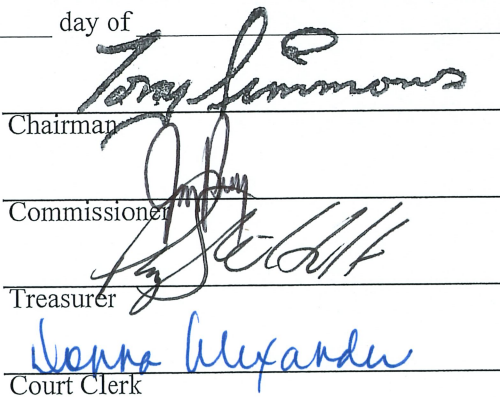 day of
Tony Simmons
Chairman
Commissioner
Treasurer
Donna Alexander
Court Clerk